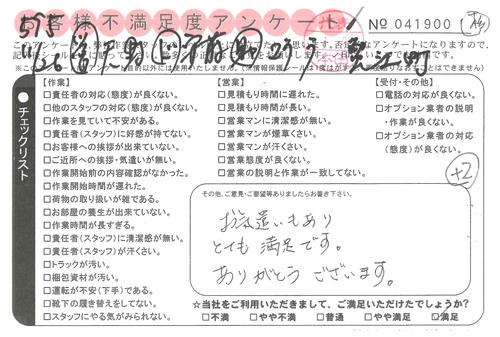 お客様不満足度アンケート
No 041900
【作業】
□責任者の対応(態度)が良くない。
□他のスタッフの対応(態度)が良くない。
□作業を見ていて不安がある。
□責任者(スタッフ)に好感が持てない。
□お客様への挨拶が出来ていない。
□ご近所への挨拶・気遣いが無い。
□作業開始前の内容確認がなかった。
□作業開始時間が遅れた。
□荷物の取り扱いが雑である。
□お部屋の養生が出来ていない。
□作業時間が長すぎる。
□責任者(スタッフ)に清潔感が無い。
□責任者(スタッフ)が汗くさい。
□トラックが汚い。
□梱包資材が汚い。
□運転が不安(下手)である。
□靴下の履き替えをしてない。
□スタッフにやる気がみられない。
【営業】
□見積もり時間に遅れた。
□見積もり時間が長い。
□営業マンに清潔感が無い。
□営業マンが煙草くさい。
□営業マンが汗くさい。
□営業態度が良くない。
□営業の説明と作業が一致してない。
【受付・その他】
□電話の対応が良くない。
□オプション業者の説明
・作業が良くない。
□オプション業者の対応
(態度)が良くない。
●チェックリスト
+2
その他、ご意見・ご要望等ありましたらお書き下さい。
お気遣いもあり
とても満足です。
ありがとうございます。
☆当社をご利用いただきまして、ご満足いただけたでしょうか?
□不満 □やや不満 □普通 □やや満足 ☑満足